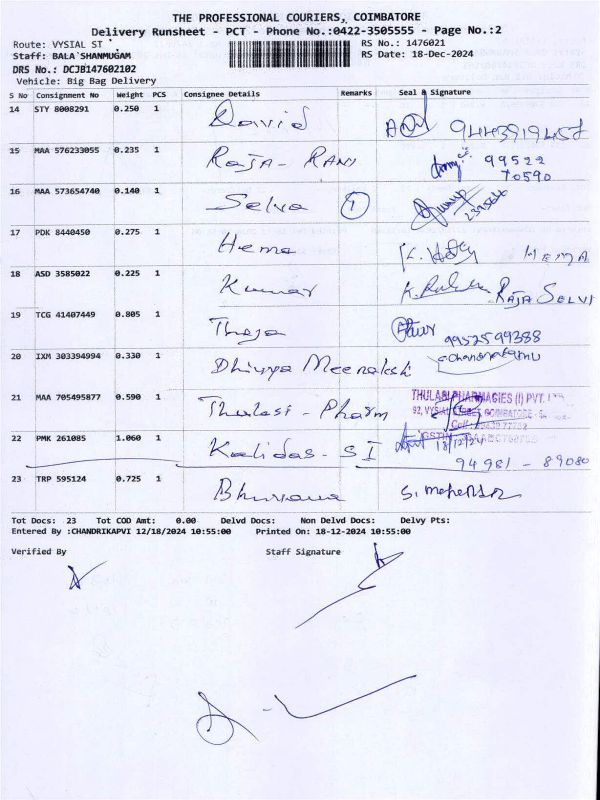 THE PROFESSIONAL COURIERS, COIMBATORE
Delivery Runsheet - PCT - Phone No.:0422-3505555 - Page No.:2
Route: VYSIAL ST RS No.: 1476021
Staff: BALA SHANMUGAM RS Date: 18-Dec-2024
DRS No.: DCJB147602102
Vehicle: Big Bag Delivery
S No Consignment No Weight PCS Consignee Details Remarks Seal & Signature
14 STY 8008291 0.250 1 David
15 MAA 576233055 0.235 1 Raja - Rani 99522
70590
16 MAA 573654740 0.140 1 Selva 1
17 PDK 8440450 0.275 1 Hema HEMA
18 ASD 3585022 0.225 1 Kumar RAJA SELVI
19 TCG 41407449 0.805 1 Theja 9952599388
20 IXM 303394994 0.330 1 Dhivya Meenakshi
21 MAA 705495877 0.590 1 Thulasi - Pharm THULASI PHARMACIES (I) PVT.
92, VYSIAL STREET, COIMBATORE
22 PMK 261085 1.060 1 Kalidas - SI 18/12/24
94981 - 89080
23 TRP 595124 0.725 1 Bhuvana
Tot Docs: 23 Tot COD Amt: 0.00 Delvd Docs: Non Delvd Docs: Delvy Pts:
Entered By :CHANDRIKAPVI 12/18/2024 10:55:00 Printed On: 18-12-2024 10:55:00
Verified By Staff Signature